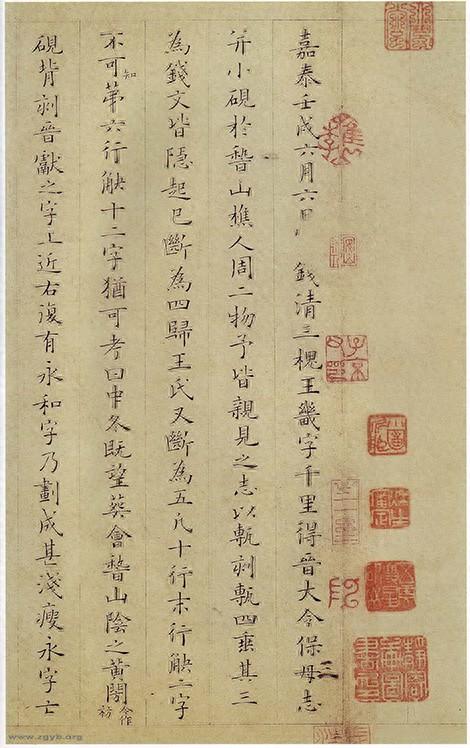 嘉泰壬戌六月六日 錢清三槐王畿字千里得晉大令保母志
并小硯於稽山樵人周二物予皆親見之志以甎刻甎四垂其三
為錢文皆隱起已斷為四歸王氏又斷為五凡十行末行觖二字
不可知第六行觖十二字猶可考曰中冬既望葬會稽山陰之黃閍今作祊
硯背刻晉獻之字上近右復有永和字乃劃成甚淺瘦永字亡
www.zgyb.org